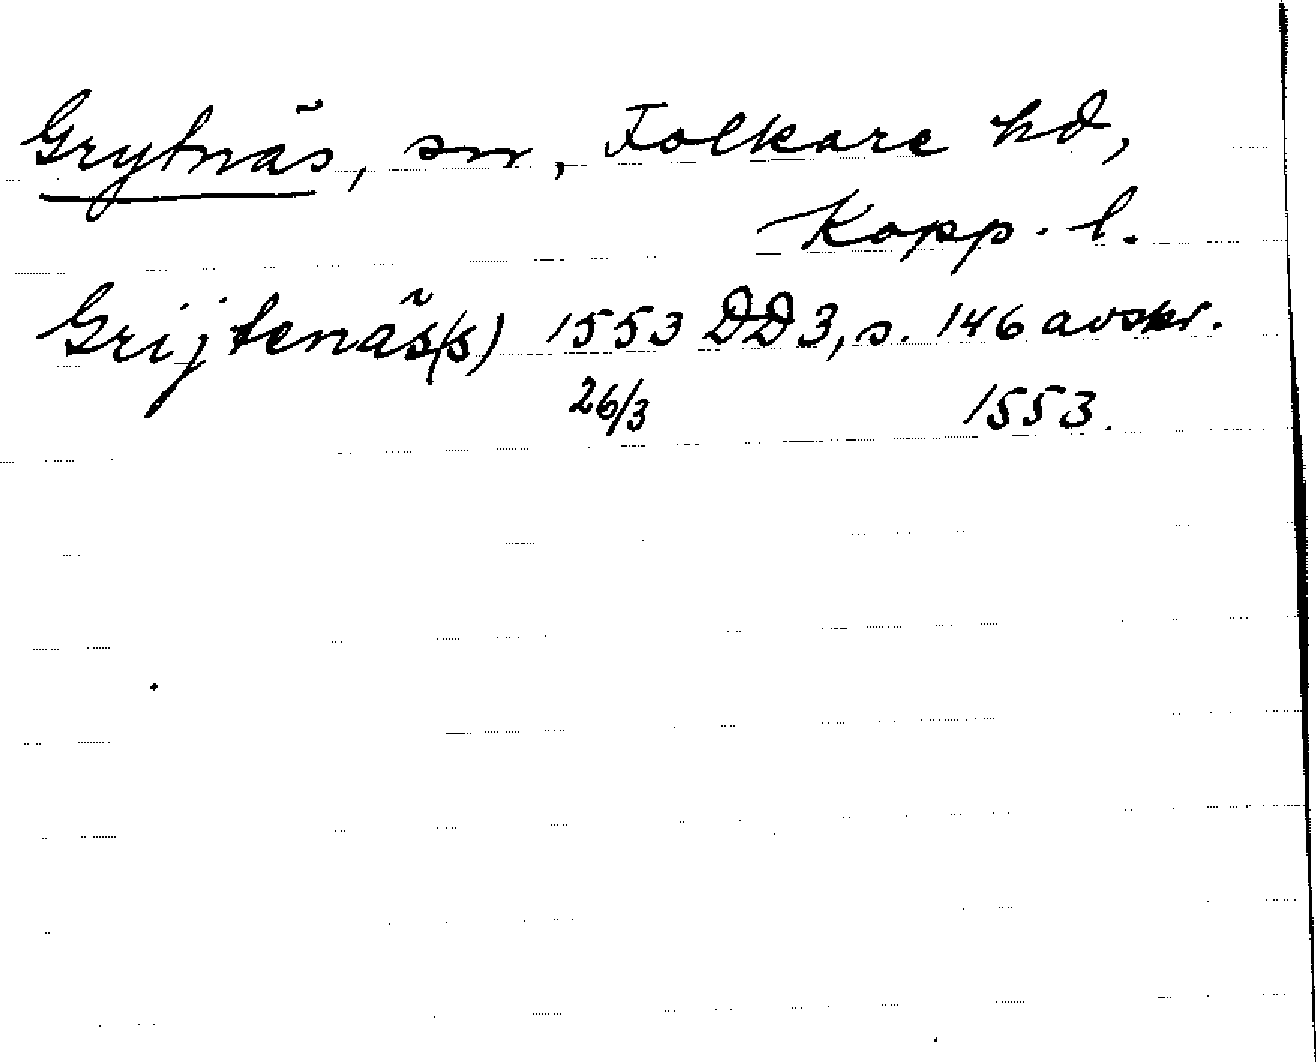 Grytnäs, sn, Folkare hd,
Kopp. l.
Grijtenäs(s) 1553 DD3, s. 146 avskr.
26/3 1553.